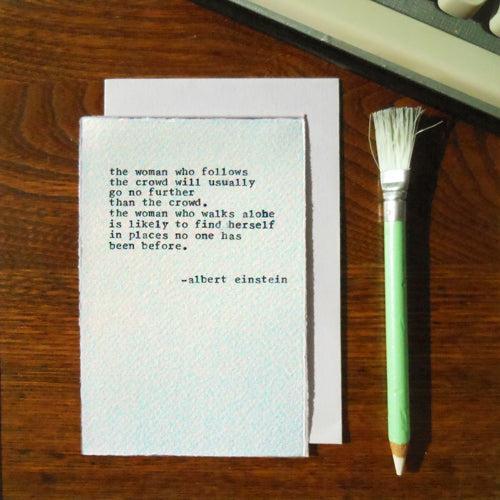 the woman who follows
the crowd will usually
go no further
than the crowd.
the woman who walks alone
is likely to find herself
in places no one has
been before.
-albert einstein